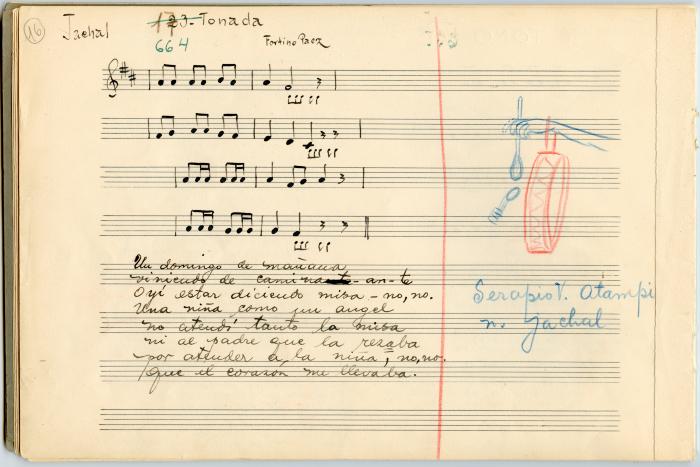 16 Jachal 123- Tonada
17
664 Fortino Paez
Un domingo de mañana
viniendo de camina-an-te
Oyí estar diciendo misa - no, no.
Una niña como un angel
no atendí tanto la misa
ni al padre que la rezaba
por atender a la niña, no, no.
que el corazón me llevaba.
Serapio V. Atampi
n. Jachal